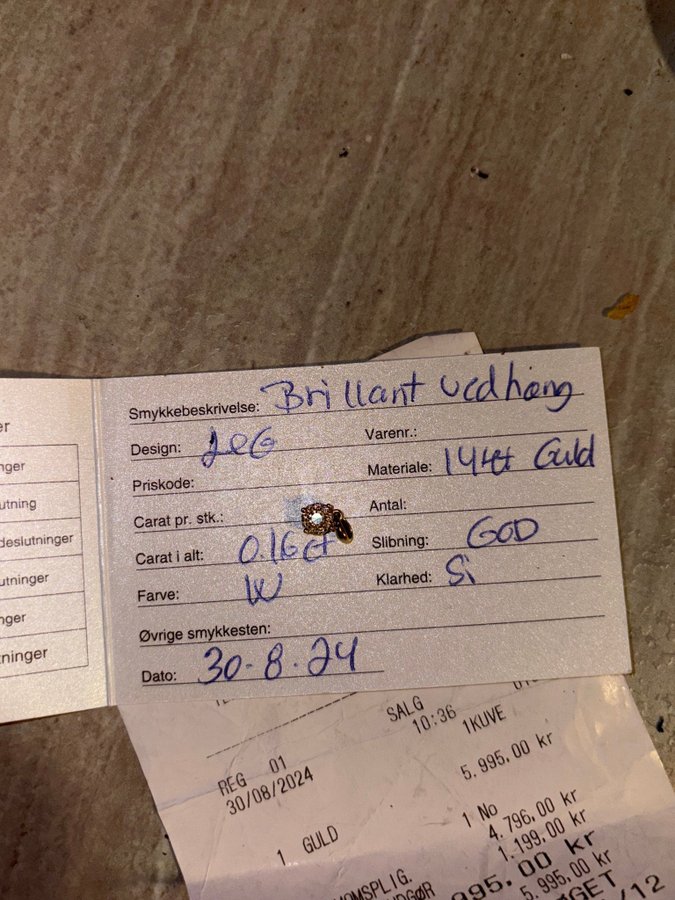 er
nger
utning
deslutninger
utninger
nger
ninger
Smykkebeskrivelse: Brillant vedhæng
Design: LeG Varenr.:
Priskode: Materiale: 14kt Guld
Carat pr. stk.: Antal:
Carat i alt: 0.16ct Slibning: GOD
Farve: W Klarhed: Si
Øvrige smykkesten:
Dato: 30-8.24
SALG
REG 01 10:36 1KUVE
30/08/2024 5.995.00 kr
1. GULD
1 No
OMSPLIG. 4.796.00 kr
DGØR 1.199.00 kr
995.00 kr
5.995.00 kr
GET
/12